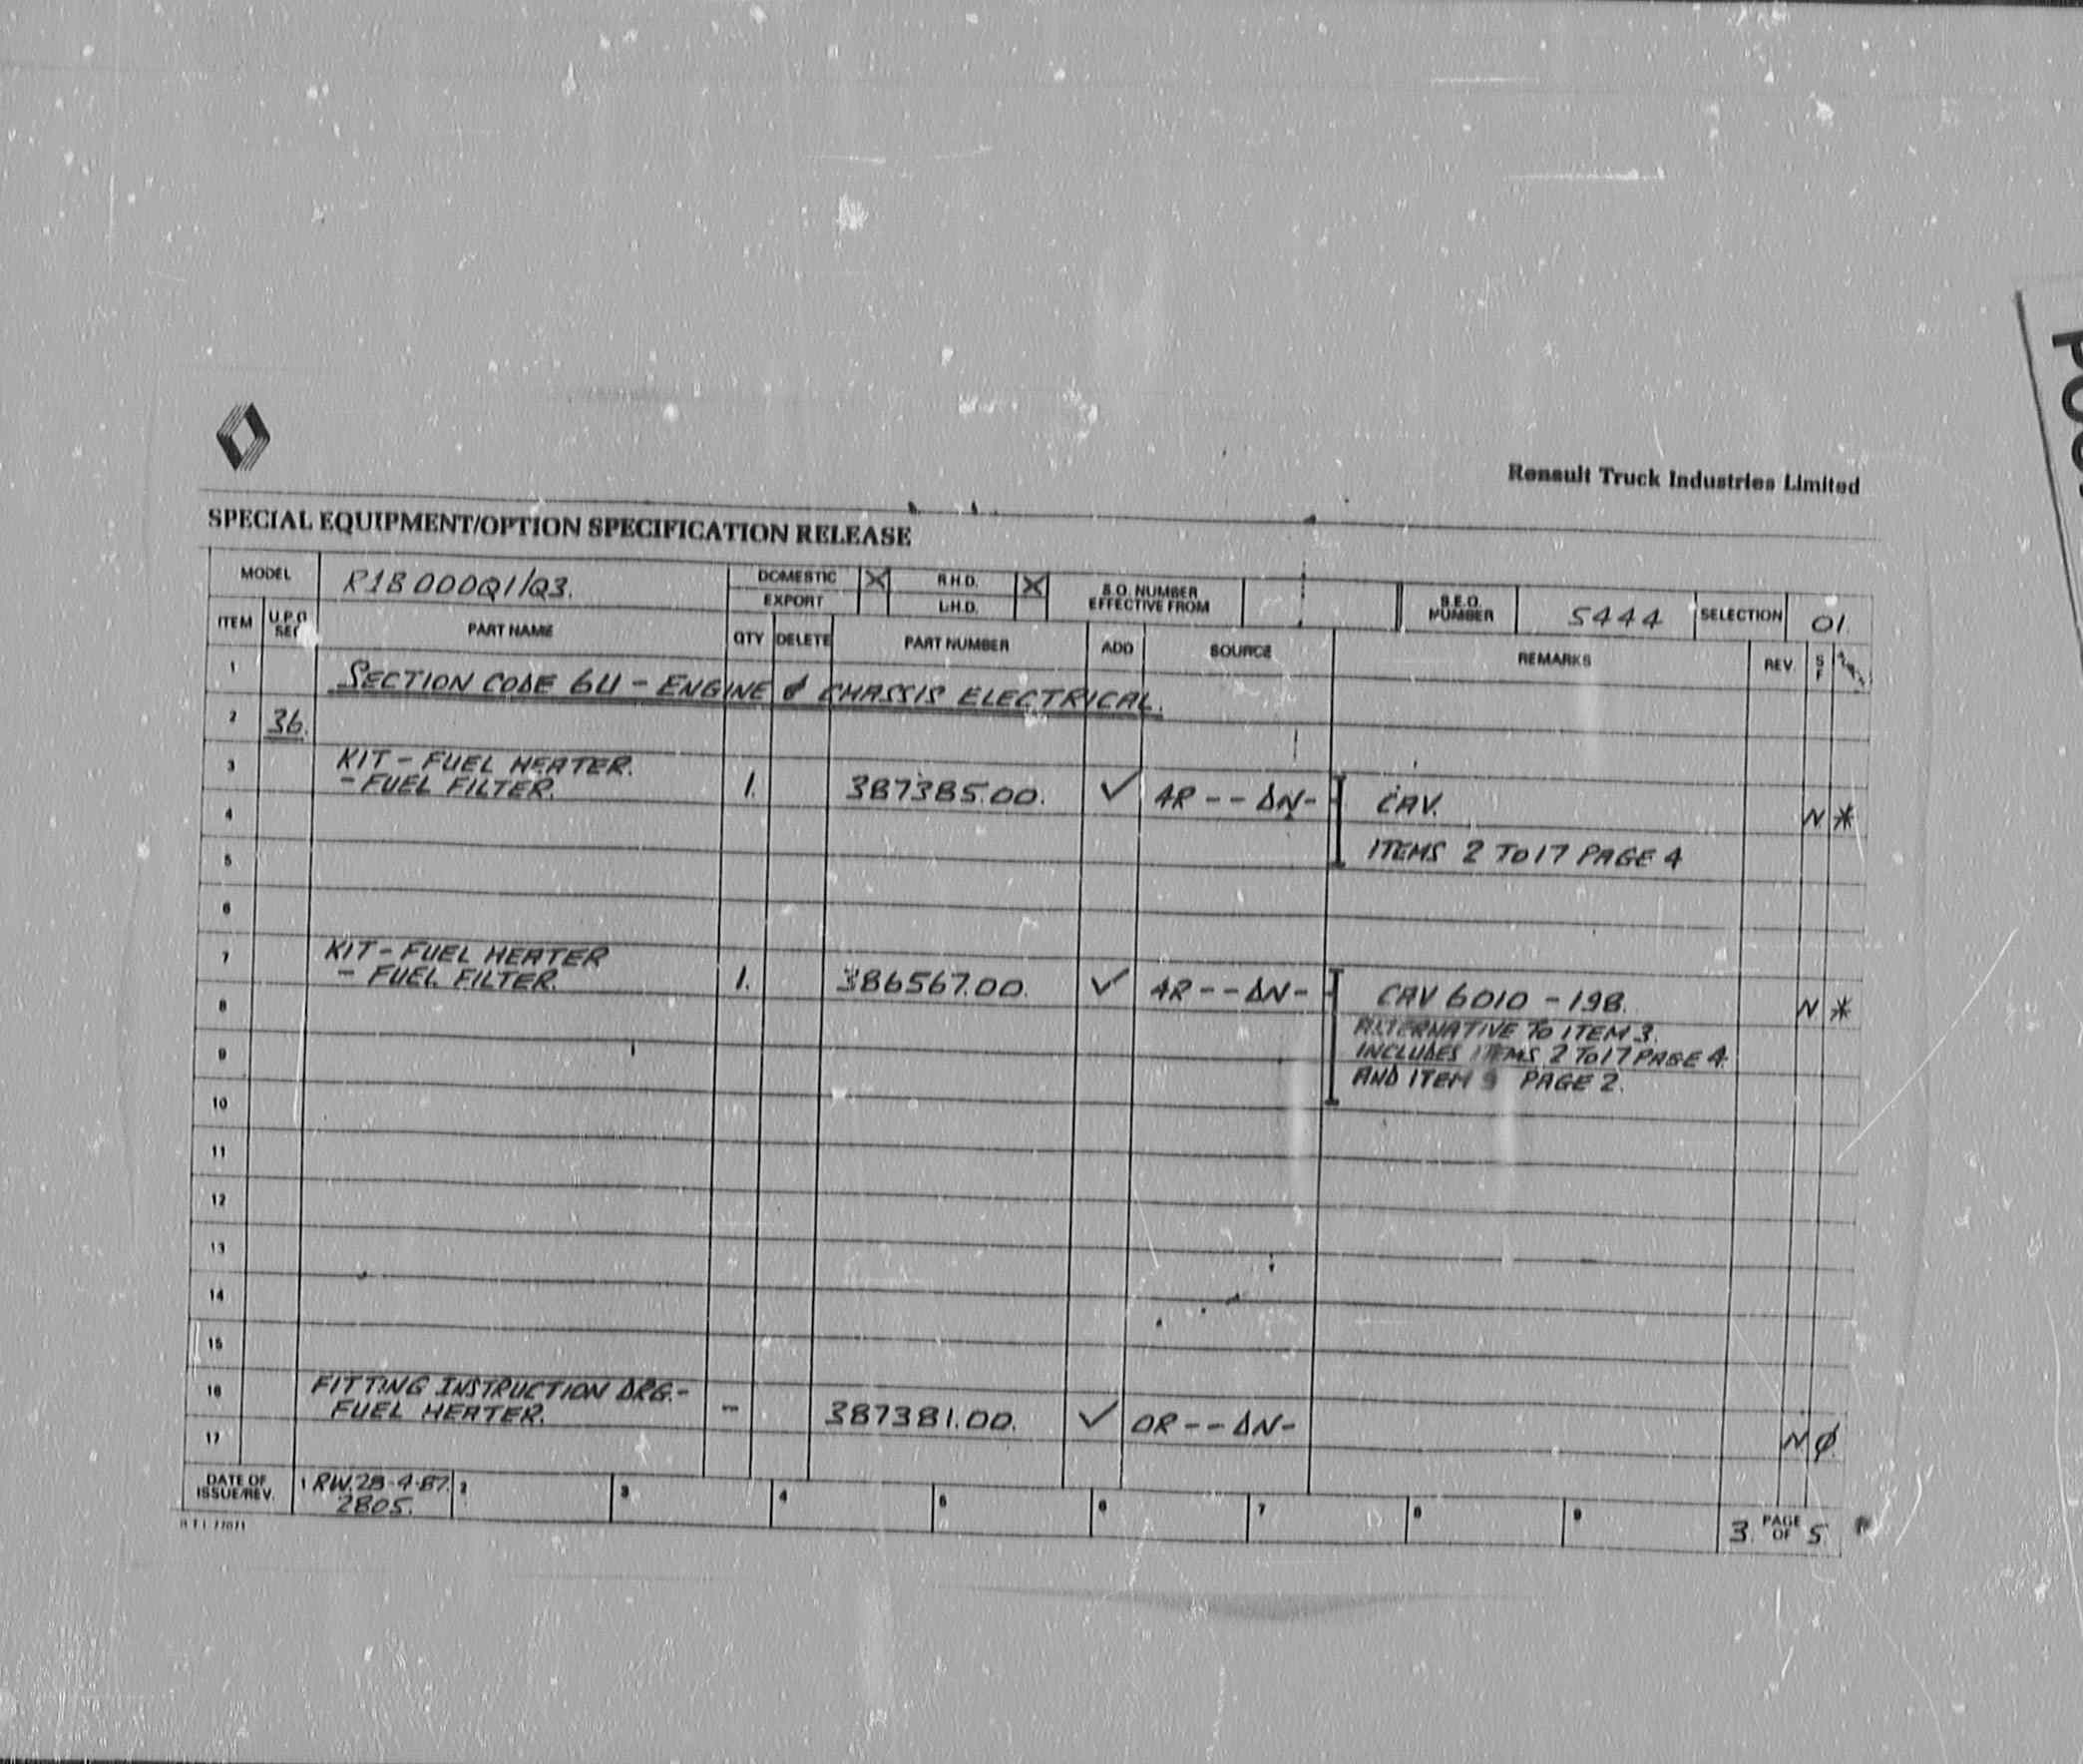 Renault Truck Industries Limited
SPECIAL EQUIPMENT/OPTION SPECIFICATION RELEASE
MODEL R1B000Q1/Q3. DOMESTIC X R.H.D. X S.O. NUMBER EFFECTIVE FROM S.E.O. NUMBER 5444 SELECTION 01.
EXPORT L.H.D.
ITEM U.P.G SEC PART NAME QTY DELETE PART NUMBER ADD SOURCE REMARKS REV. S F
1 SECTION CODE 6U - ENGINE & CHASSIS ELECTRICAL.
2 36.
3 KIT - FUEL HEATER.
- FUEL FILTER. 1. 387385.00. ✓ AR - - ΔN - CAV. N *
4
ITEMS 2 TO 17 PAGE 4
5
6
7 KIT - FUEL HEATER
- FUEL FILTER. 1. 386567.00. ✓ AR - - ΔN - CAV 6010 - 19B. N *
8 ALTERNATIVE TO ITEM 3.
9 INCLUDES ITEMS 2 TO 17 PAGE 4
AND ITEM 9 PAGE 2.
10
11
12
13
14
15
16 FITTING INSTRUCTION DRG. -
FUEL HEATER. - 387381.00. ✓ OR - - ΔN -
17 N Ø
DATE OF ISSUE/REV. 1 RW. 28-4-87. 2 3 4 5 6 7 8 9 3. PAGE OF 5.
2805.